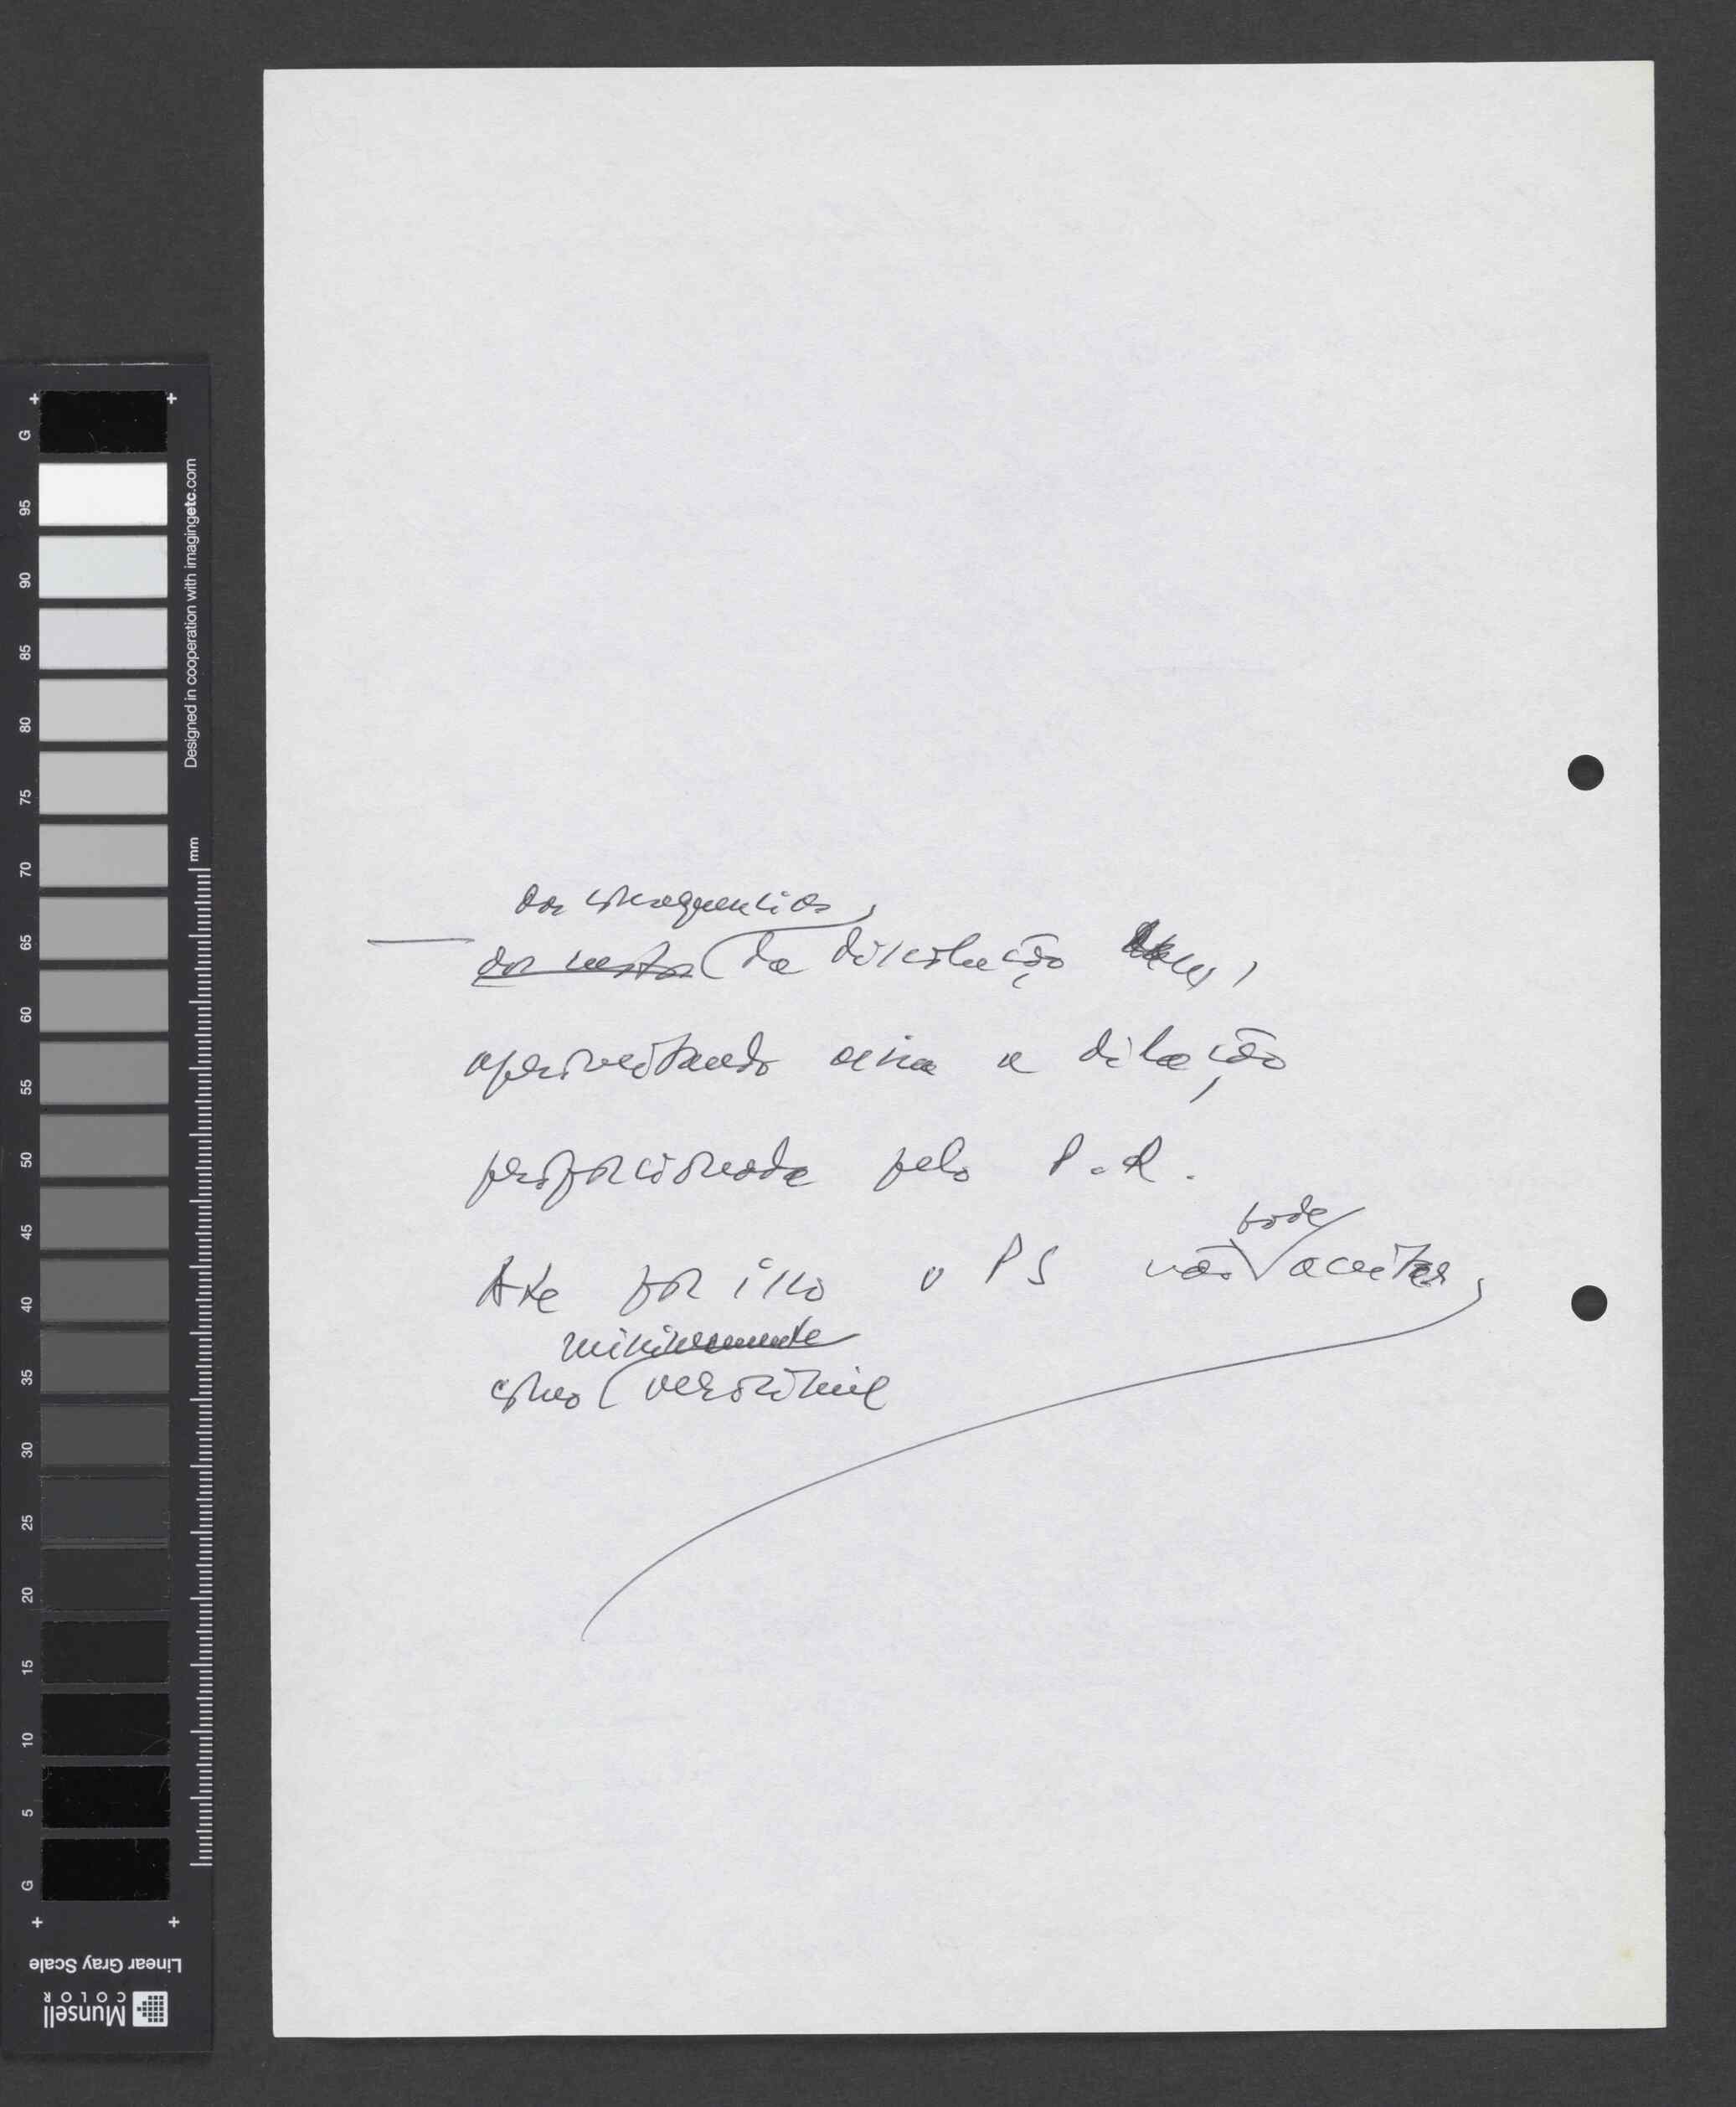 das consequências
dos custos da dissolução
aproveitando assim a dilação
proporcionada pelo P.R.
pode
Até por isso o PS não aceitar,
minimamente
como verosímil
G
95
90
85
80
75
70
65
60
55
50
45
40
35
30
25
20
15
10
5
G
Designed in cooperation with imagingetc.com
mm
Linear Gray Scale
Munsell
COLOR